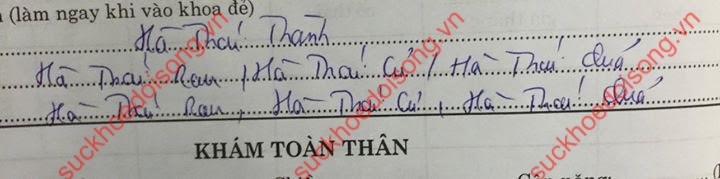 (làm ngay khi vào khoa đẻ)
Hà Thái Thanh
Hà Thái Rau, Hà Thái Củ, Hà Thái Quả
Hà Thái Rau, Hà Thái Củ, Hà Thái Quả
KHÁM TOÀN THÂN
suckhoedoisong.vn
suckhoedoisong.vn
suckhoedoisong.vn